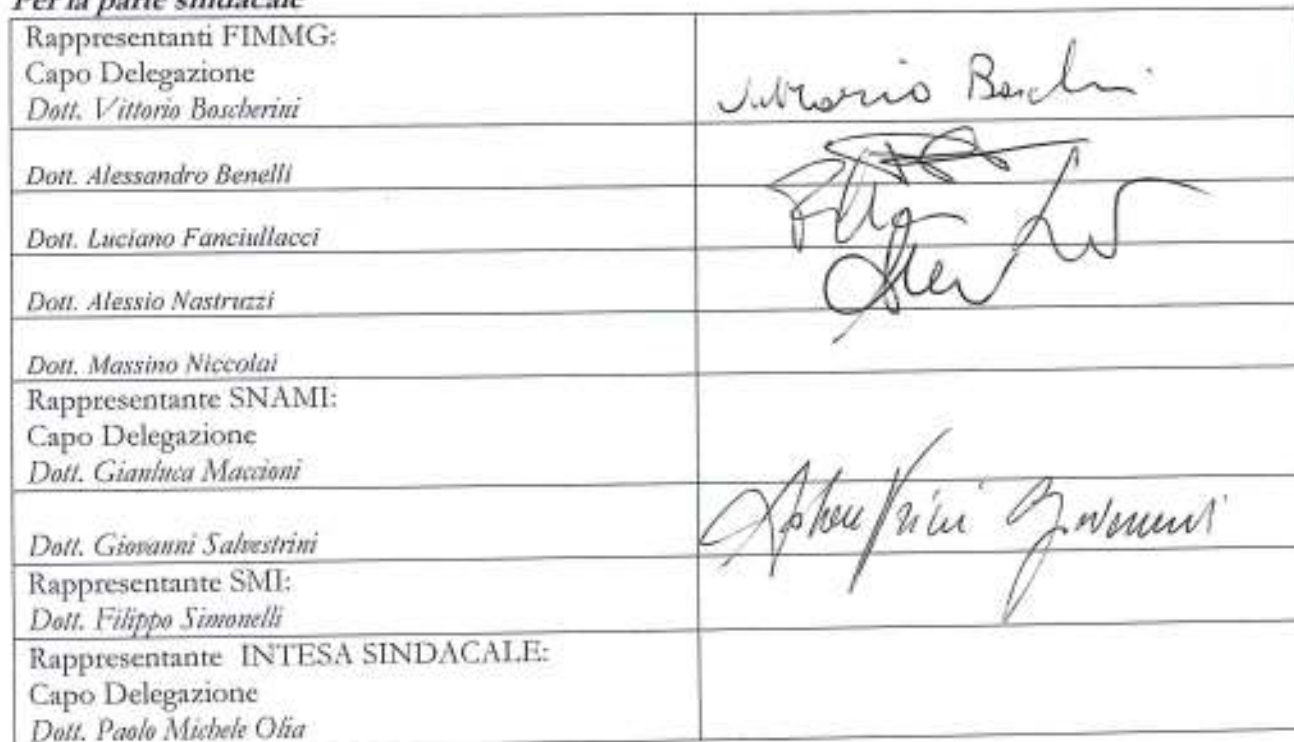 Per la parte sindacale
Rappresentanti FIMMG:
Capo Delegazione
Dott. Vittorio Boscherini
Vittorio
Dott. Alessandro Benelli
Dott. Luciano Fanciullacci
Dott. Alessio Nastruzzi
Dott. Massino Niccolai
Rappresentante SNAMI:
Capo Delegazione
Dott. Gianluca Maccioni
Dott. Giovanni Salvestrini
Rappresentante SMI:
Dott. Filippo Simonelli
Rappresentante INTESA SINDACALE:
Capo Delegazione
Dott. Paolo Michele Olia